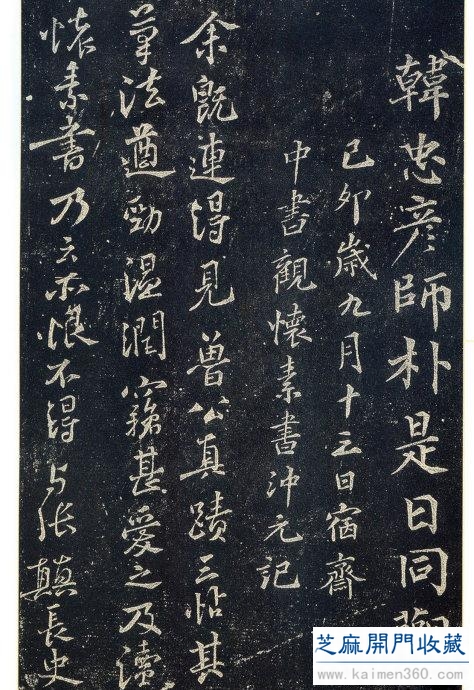 韓忠彥師朴是日同觀
己卯歲九月十三日宿齋
中書觀懷素書沖元記
余既連得見魯公真蹟三帖其
筆法遒勁溫潤竊甚愛之及讀
懷素書乃云亦恨不得与張顛長史
芝麻開門收藏
www.kaimen360.com